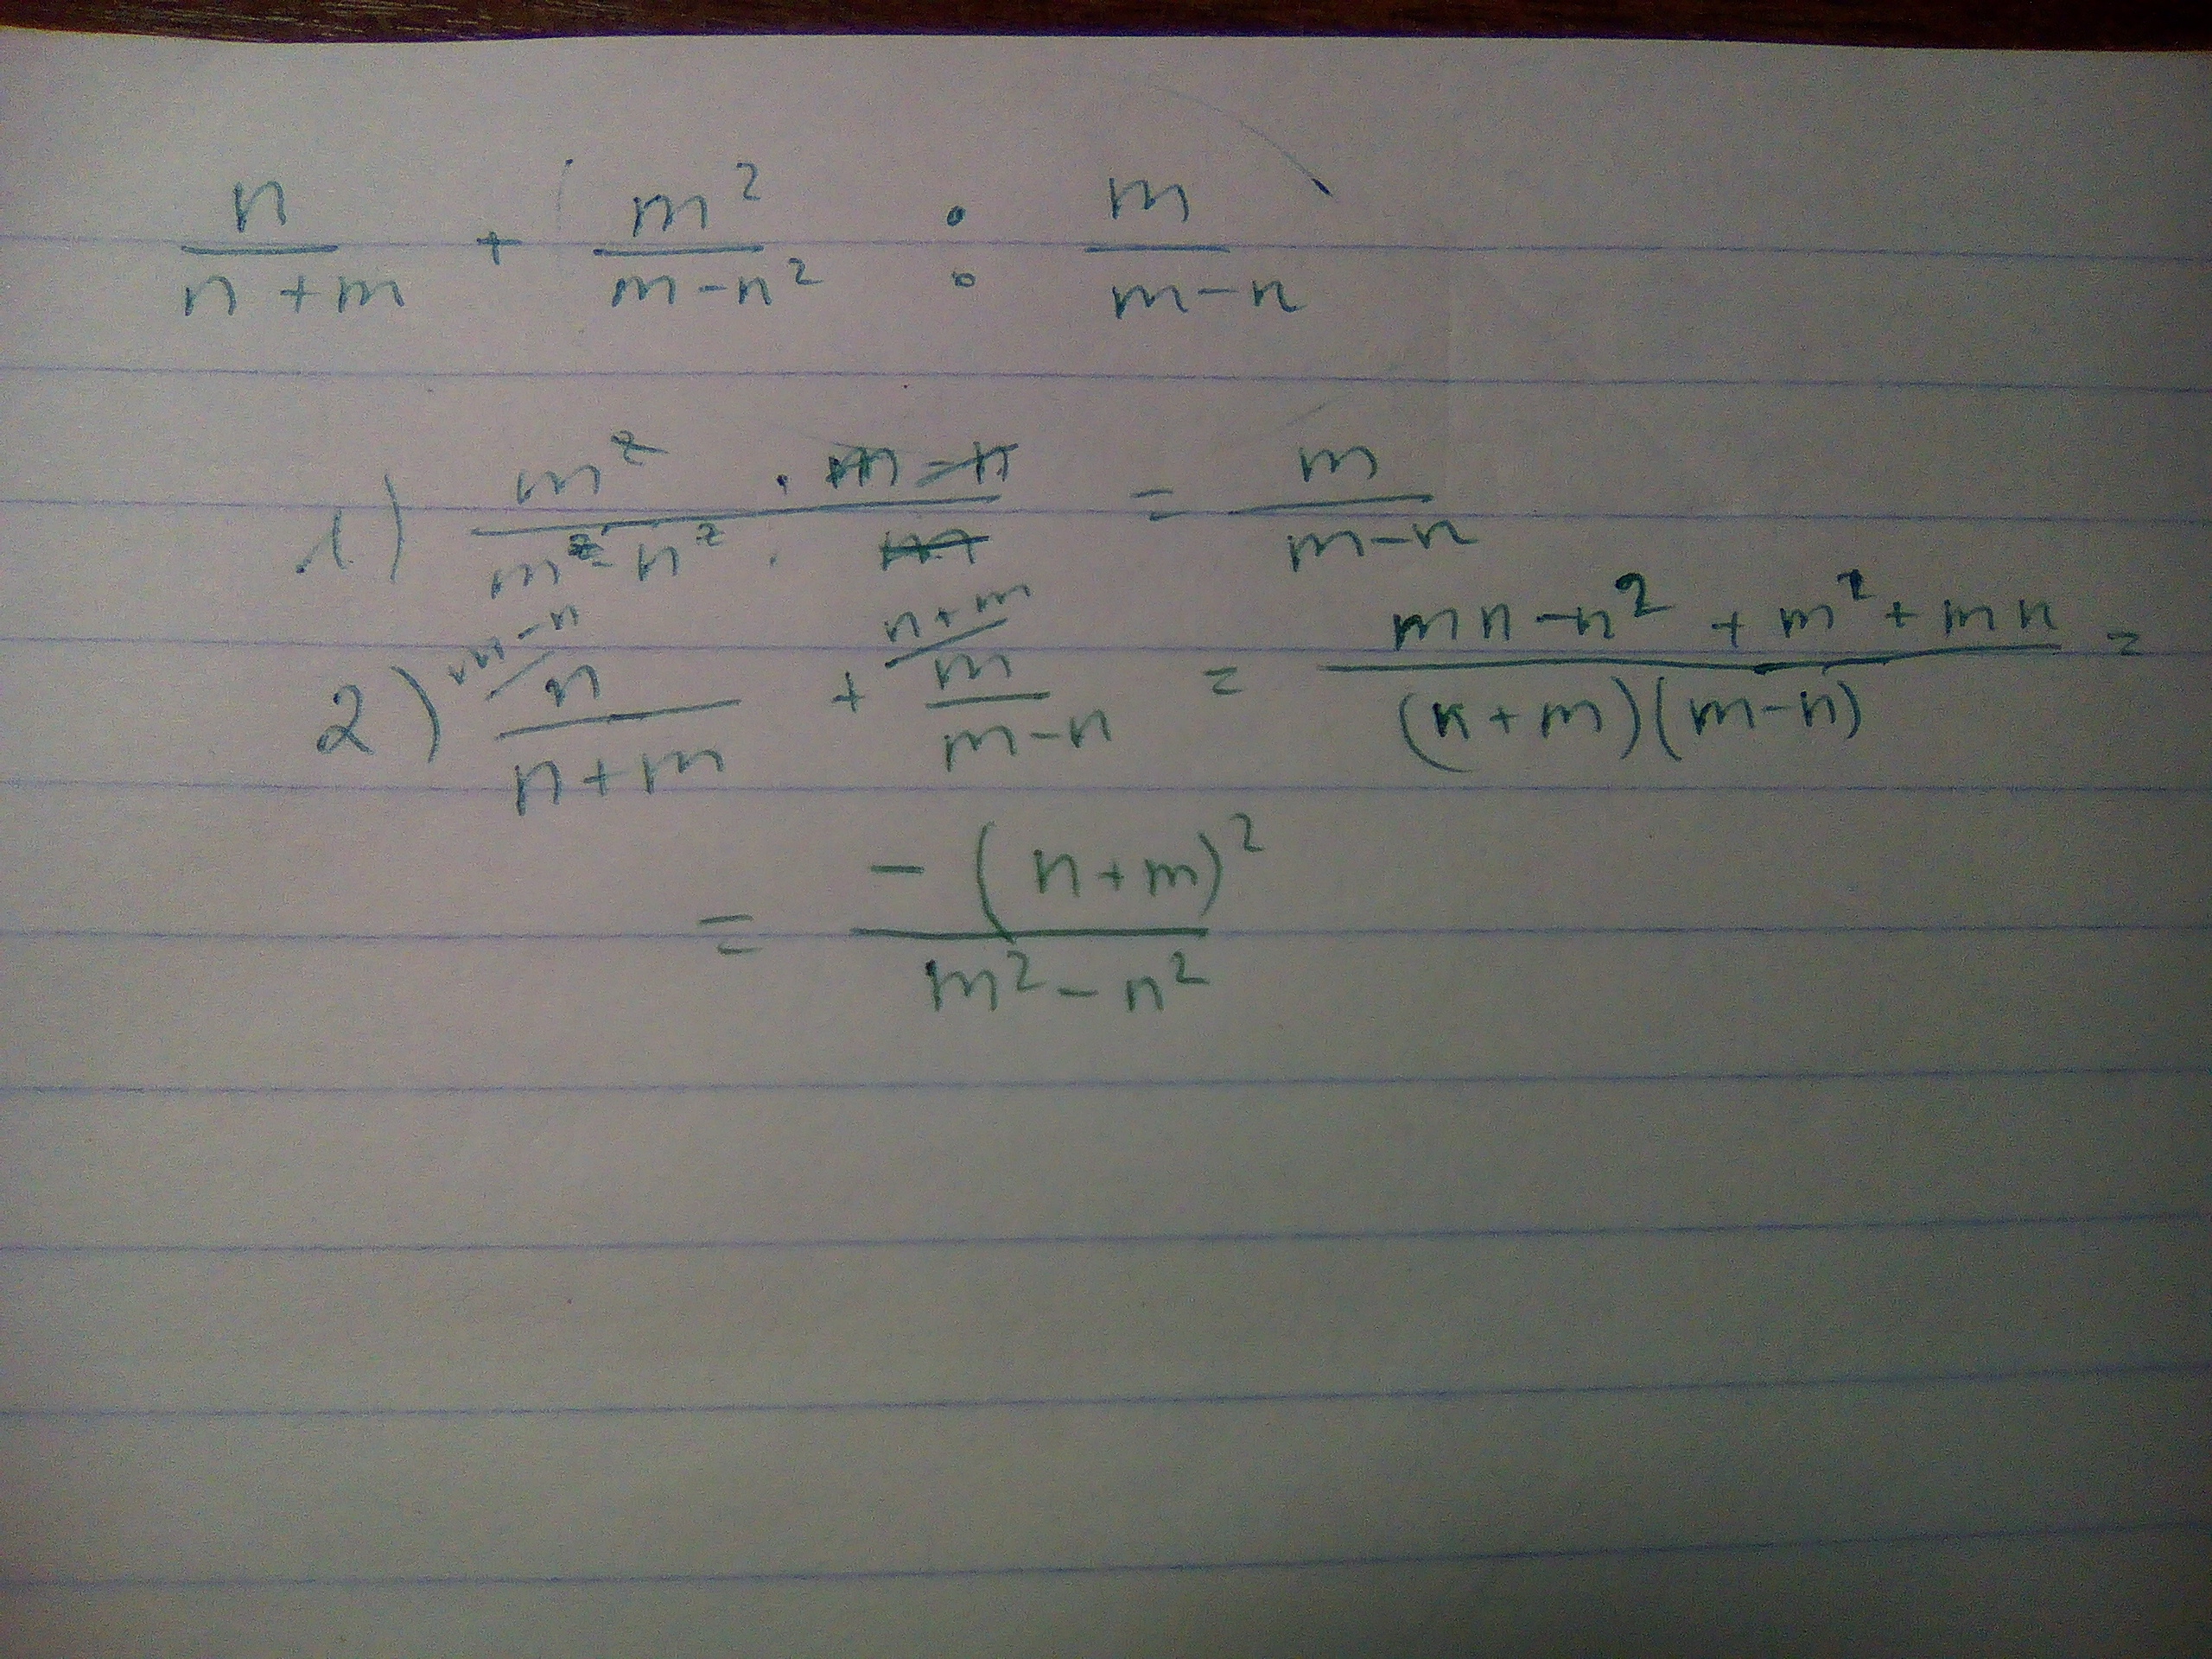 n/(n+m) + m²/(m-n²) : m/(m-n)
1) (m² · m-n)/(m² n² · m) = m/(m-n)
2) m-n/ n/(n+m) + n+m/ m/(m-n) = (mn-n²+m²+mn)/((n+m)(m-n)) =
= -(n+m)²/(m²-n²)